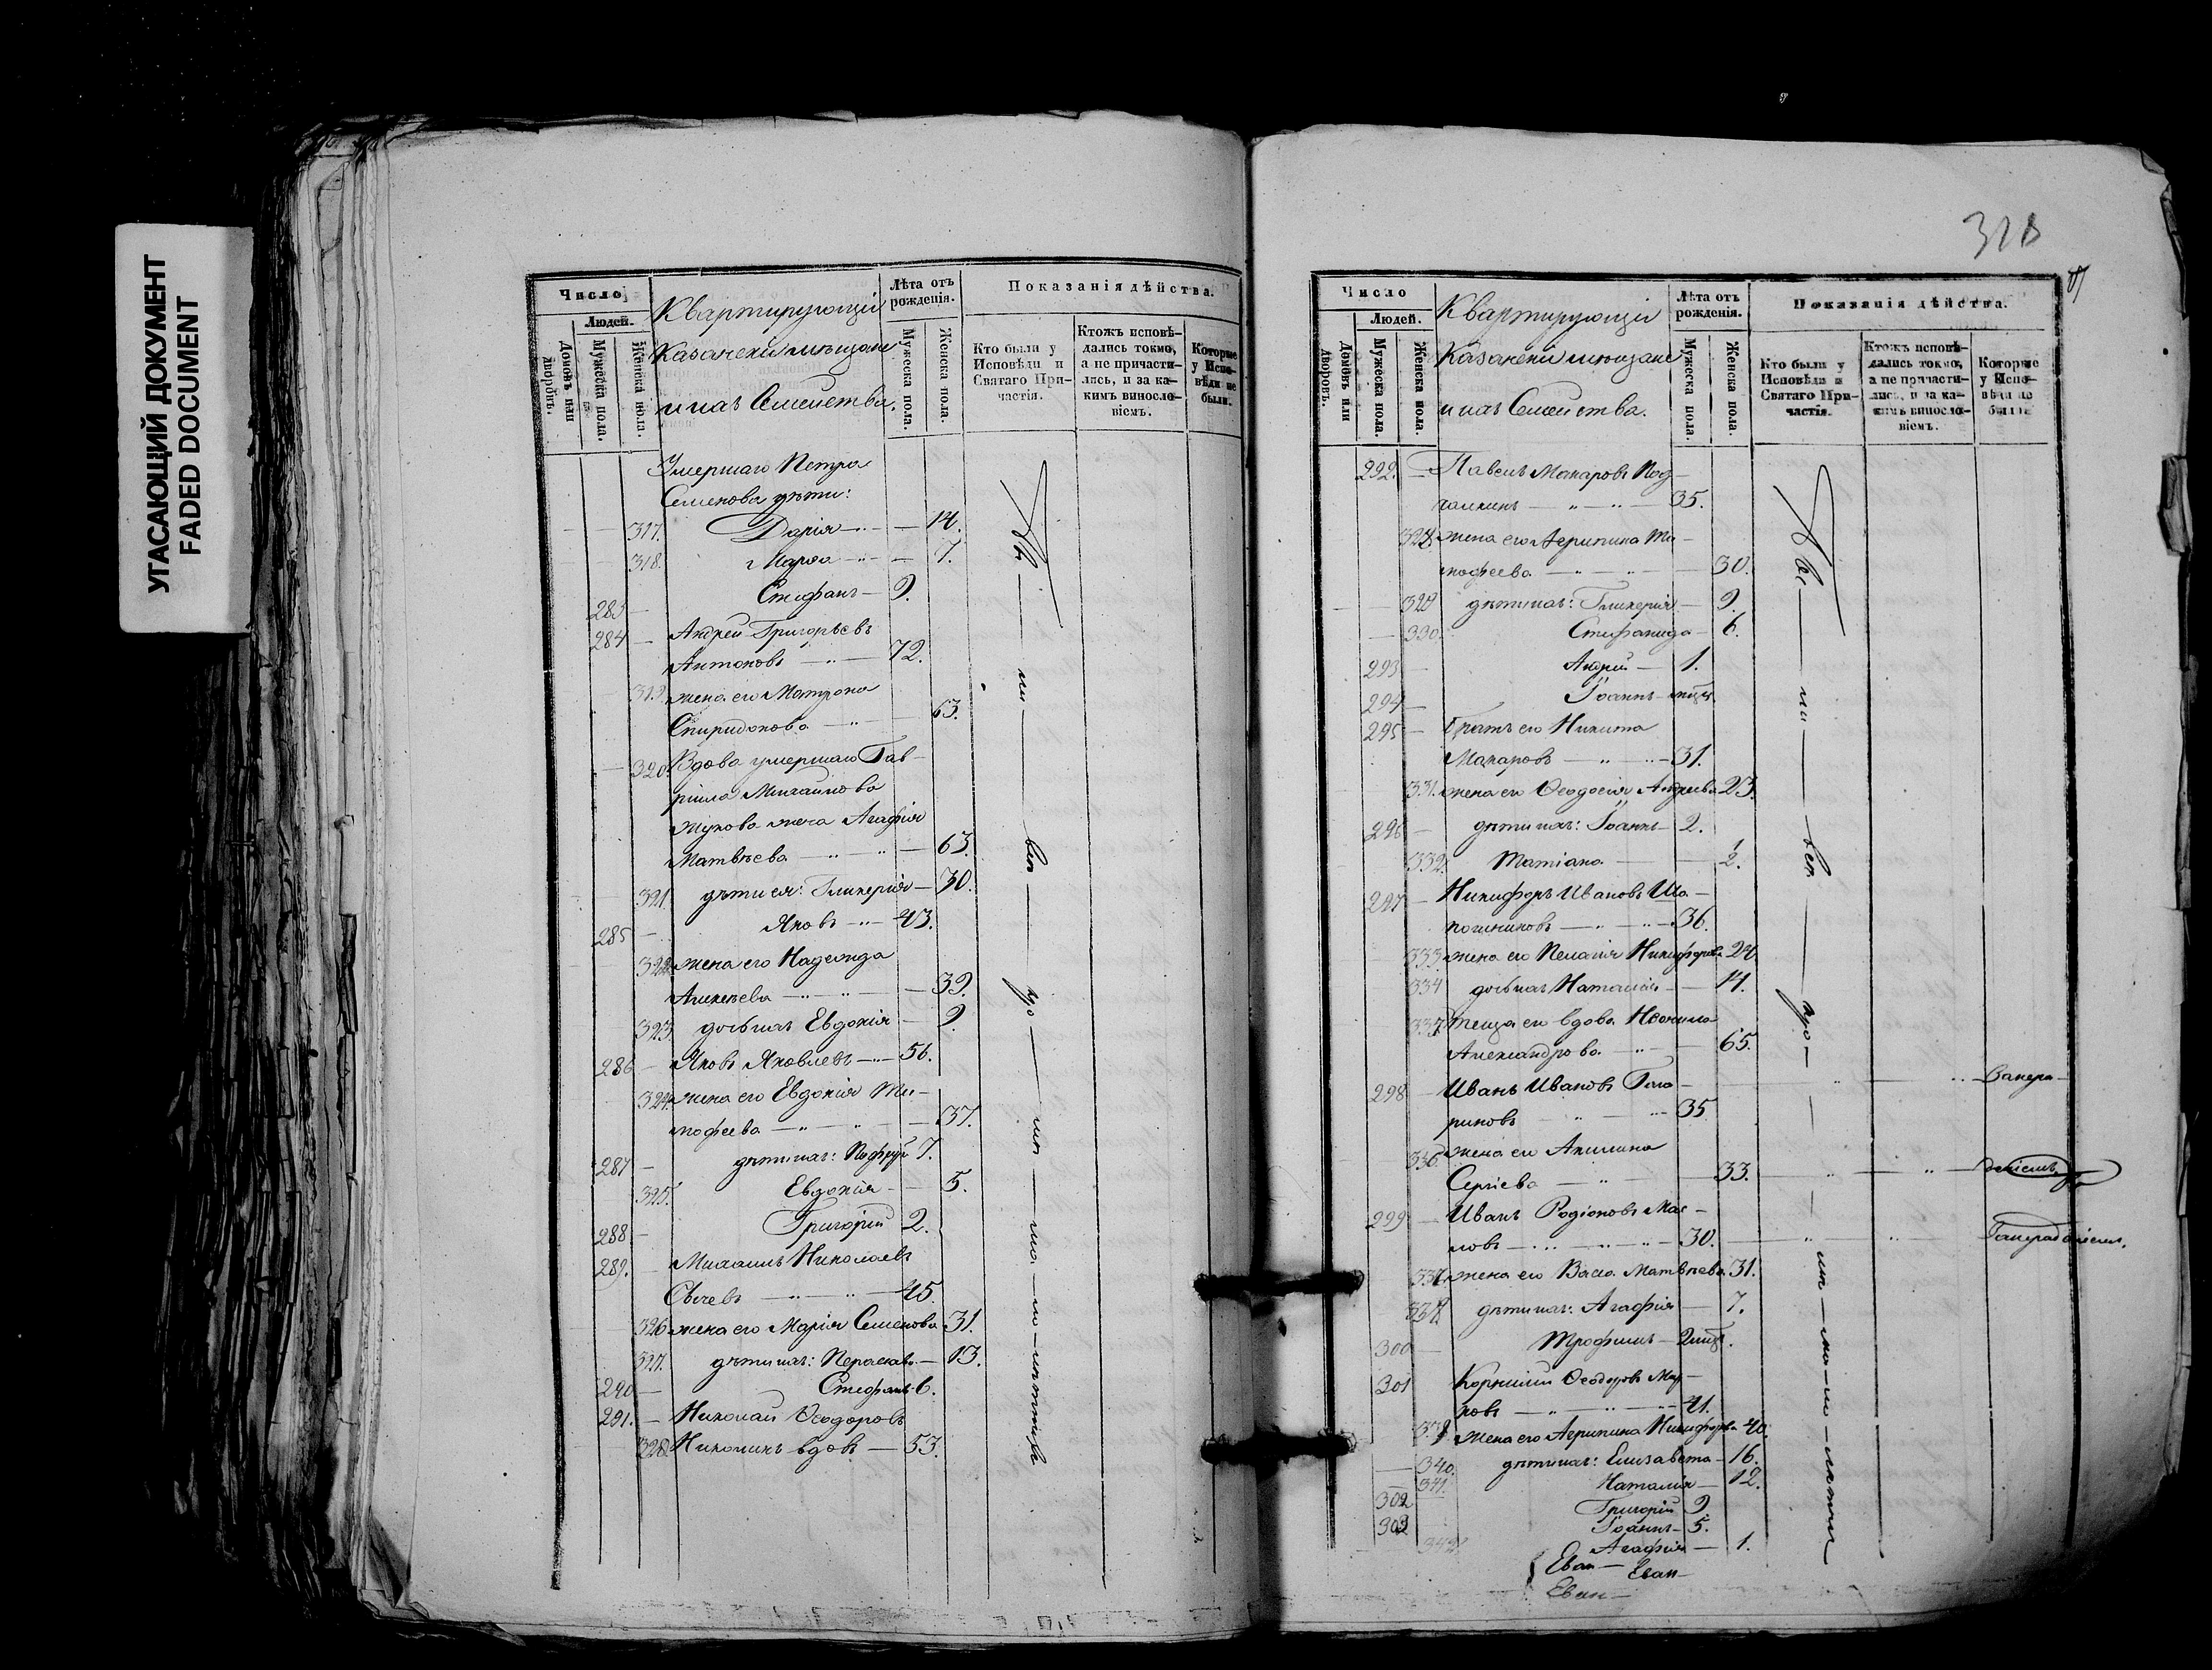 УГАСАЮЩИЙ ДОКУМЕНТ
FADED DOCUMENT
Число
Людей.
Домовъ или дворовъ.
Мужеска пола.
Женска пола.
Квартирующiи
Казанскiи мѣщане
и ихъ Семейства.
Лѣта отъ рожденiя.
Мужеска пола.
Женска пола.
Показанiя дѣйства.
Кто были у Исповѣди и Святаго Причастiя.
Ктожъ исповѣдались токмо, а не причастились, и за какимъ винословiемъ.
Которые у Исповѣди не были.
Умершаго Петра
Семенова дѣти:
317. Дарiя — 14.
318. Марѳа — 7.
283 — Стефанъ — 9.
284 — Андрей Григорьевъ
Антоновъ — 72.
319. жена его Матрона
Спиридонова — 63.
320. Вдова умершаго Гав-
рiила Михайлова
Жукова жена Агафiя
Матвѣева — 63.
321 дѣти ея: Гликерiя — 30.
285 — Яковъ — 43.
322 жена его Надежда
Алексѣева — 39.
323. дочь ихъ Евдокiя — 9.
286 — Яковъ Яковлевъ — 56.
324. жена его Евдокiя Ти-
мофеева — 37.
287 — дѣти ихъ: 7.
325. Евдокiя — 5.
288 — Григорiй 2.
289. Михаилъ Николаевъ
45.
326 жена его Марiя Семенова 31.
327. дѣти ихъ: Параскева — 13.
290 — Стефанъ 6.
291. — Николай Ѳеодоровъ
328 вдовъ — 53.
318
Число
Людей.
Домовъ или дворовъ.
Мужеска пола.
Женска пола.
Квартирующiи
Казанскiи мѣщане
и ихъ Семейства.
Лѣта отъ рожденiя.
Мужеска пола.
Женска пола.
Показанiя дѣйства.
Кто были у Исповѣди и Святаго Причастiя.
Ктожъ исповѣдались токмо, а не причастились, и за какимъ винословiемъ.
Которые у Исповѣди не были
292. — Павелъ Макаровъ
35.
328 жена его Агрипина Ти-
мофеева — 30.
329 дѣти ихъ: Гликерiя — 9.
330. Стефанида — 6.
293 — Андрей — 1.
294 — Iоаннъ
295 — Братъ его Никита
Макаровъ — 31.
331. жена его Ѳеодосiя Андреева 23.
296 — дѣти ихъ: Iоаннъ — 2.
332. Татiана — 1/2.
297 — Никифоръ Ивановъ Ша-
36.
333. жена его Пелагiя Никифорова
334 дочь ихъ Наталiя —
теща его вдова Неонила
Александрова — 65.
298 — Иванъ Ивановъ Гага-
риновъ — 35
жена его Акилина
Сергiева — 33.
299 — Иванъ Родiоновъ Мас-
ловъ — 30.
жена его Васса Матвѣева 31.
дѣти ихъ: Агафiя — 7.
300 — Трофимъ —
301 Корнилiй Ѳеодоровъ Мар-
ковъ — 41.
жена его Агрипина Никифорова 40.
340. дѣти ихъ: Елизавета — 16.
341. Наталiя — 12.
302 Григорiй 9
303 Iоаннъ — 5.
342 Агафiя — 1.